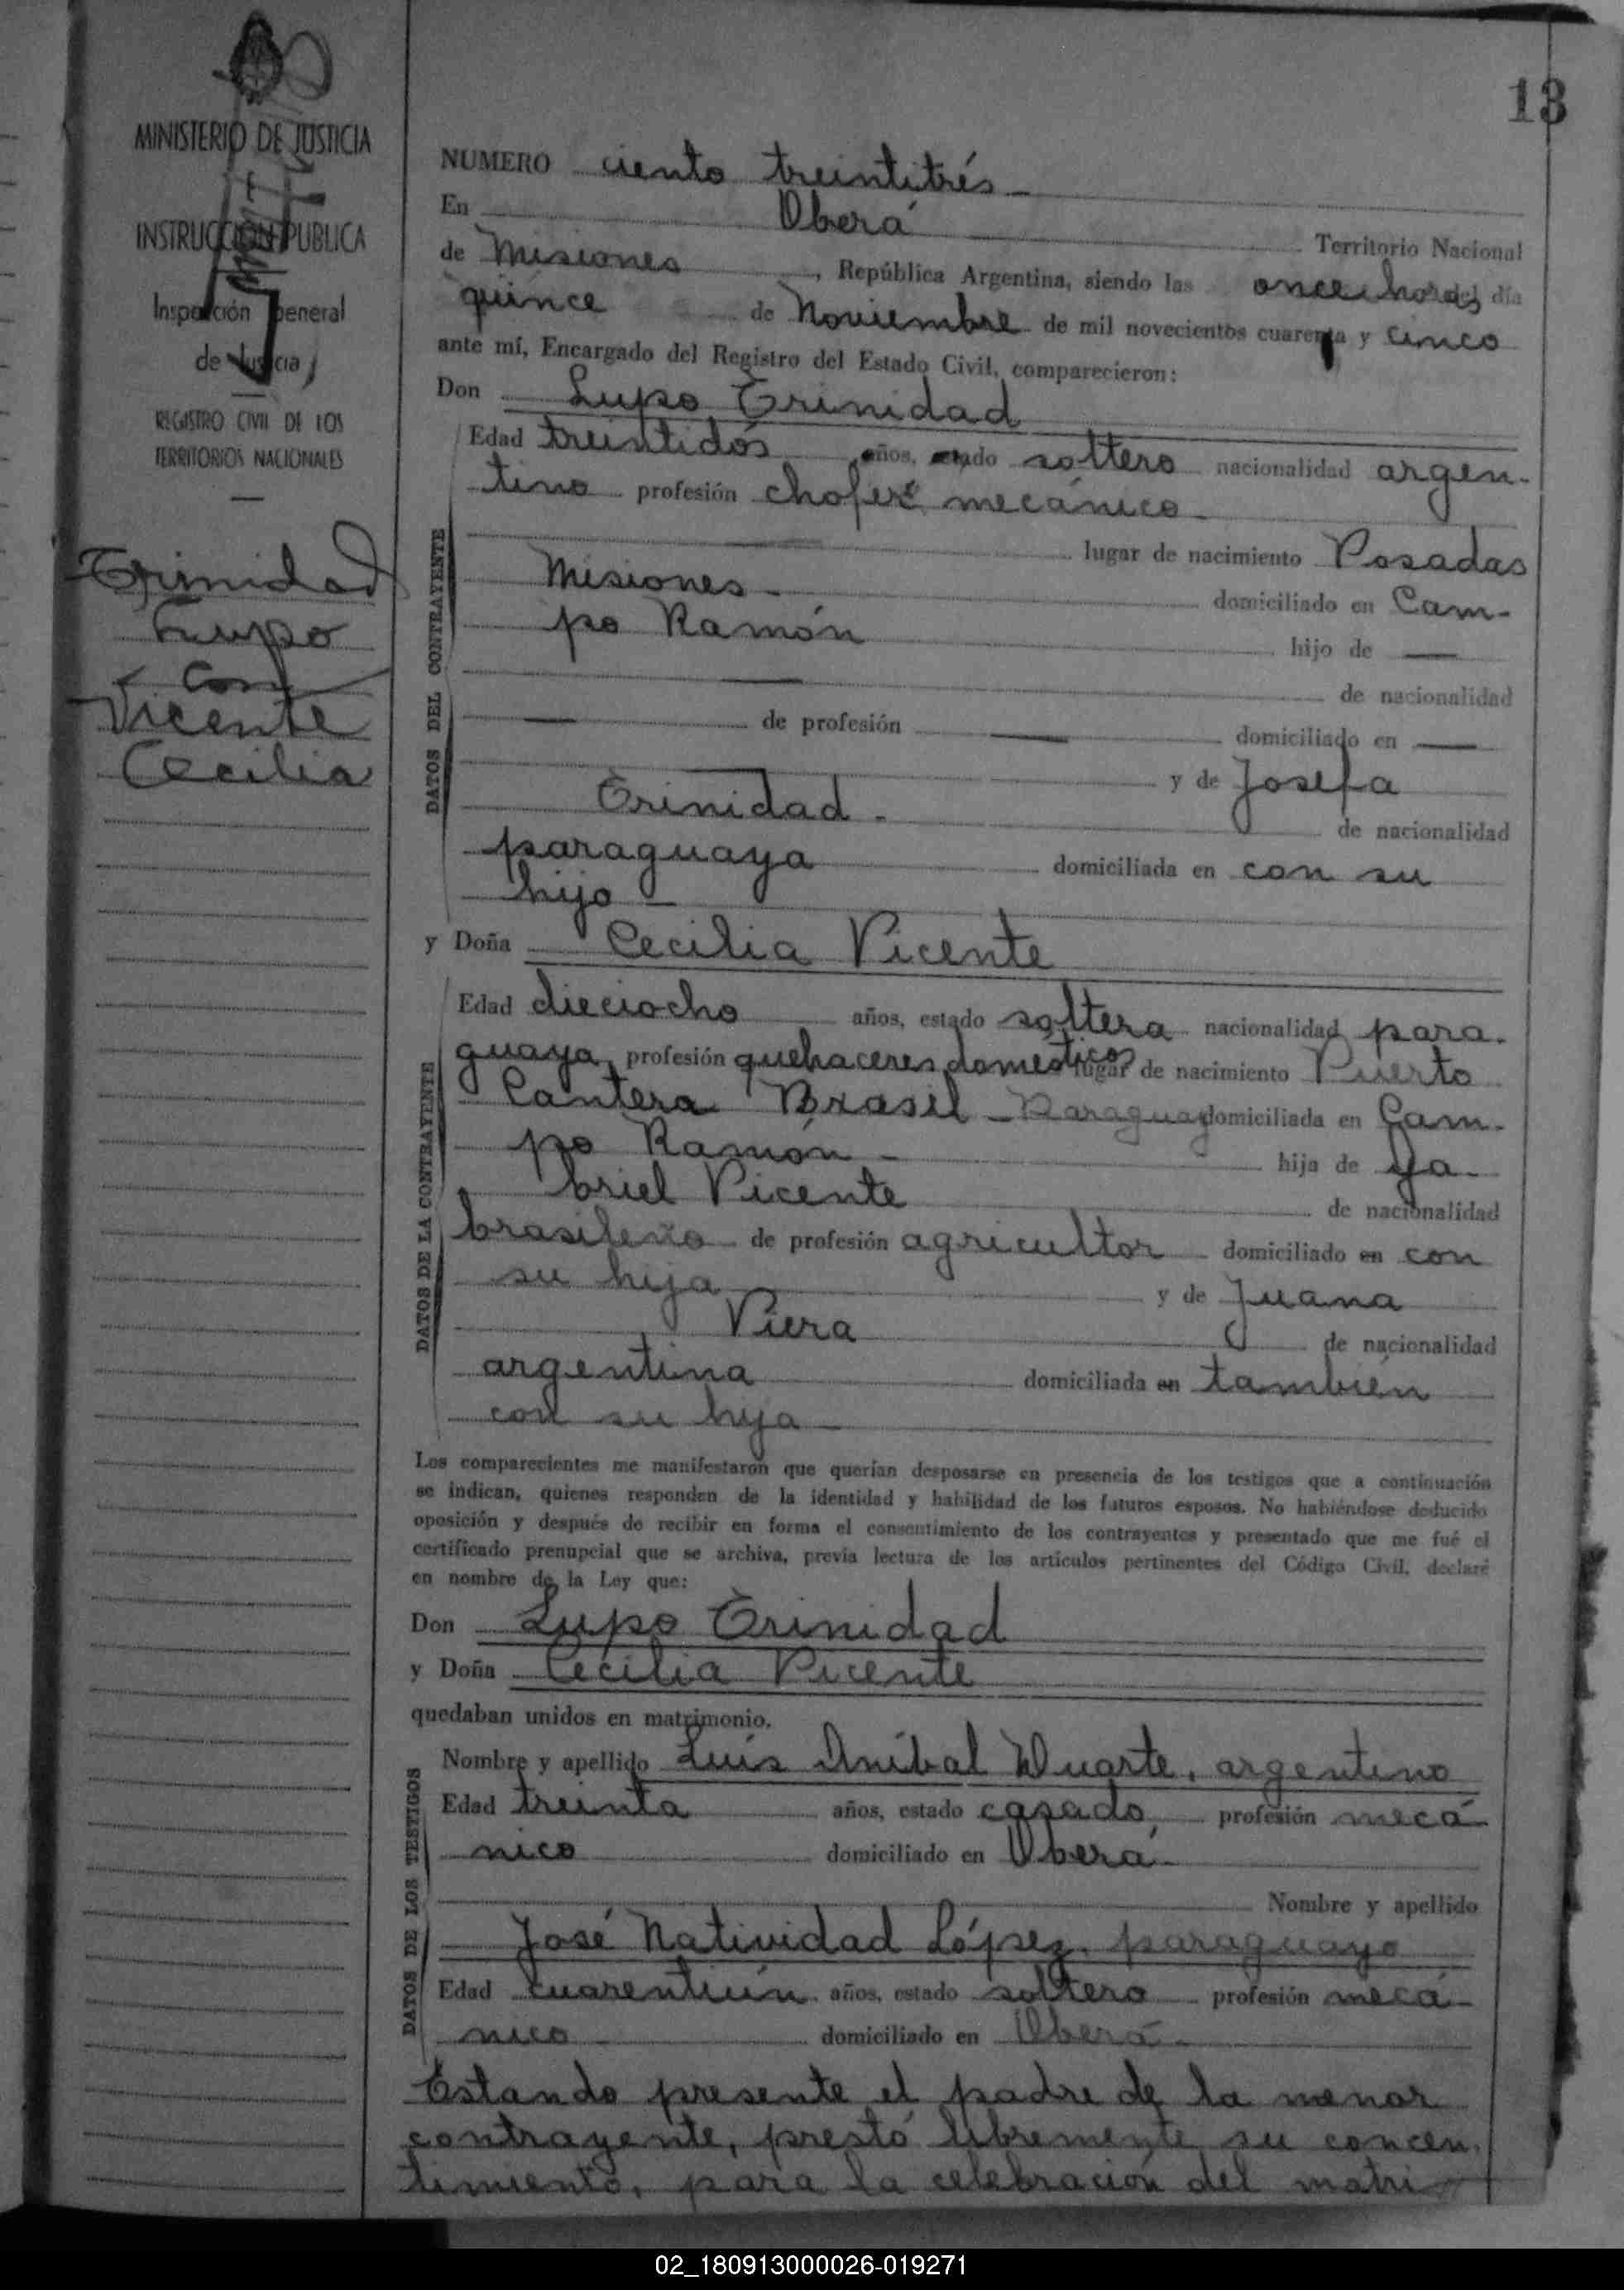 13
MINISTERIO DE JUSTICIA
INSTRUCCION PUBLICA
Inspección General
de Justicia
REGISTRO CIVIL DE LOS
TERRITORIOS NACIONALES
Trinidad
Lupo
con
Vicente
Cecilia
NUMERO ciento treintitrés
En Oberá Territorio Nacional
de Misiones, República Argentina, siendo las once horas del día
quince de Noviembre de mil novecientos cuarenta y cinco
ante mí, Encargado del Registro del Estado Civil, comparecieron:
Don Lupo Trinidad
DATOS DEL CONTRAYENTE
Edad treintidós años, estado soltero nacionalidad argen-
tino profesión chofer mecánico
lugar de nacimiento Posadas
Misiones - domiciliado en Cam-
po Ramón hijo de —
— de nacionalidad
— de profesión — domiciliado en —
— y de Josefa
Trinidad - de nacionalidad
paraguaya domiciliada en con su
hijo -
y Doña Cecilia Vicente
DATOS DE LA CONTRAYENTE
Edad dieciocho años, estado soltera nacionalidad para-
guaya, profesión quehaceres domésticos lugar de nacimiento Puerto
Cantera Brasil - Paraguay domiciliada en Cam-
po Ramón - hija de Ga-
briel Vicente de nacionalidad
brasileño de profesión agricultor domiciliado en con
su hija y de Juana
Viera de nacionalidad
argentina domiciliada en también
con su hija -
Los comparecientes me manifestaron que querían desposarse en presencia de los testigos que a continuación
se indican, quienes responden de la identidad y habilidad de los futuros esposos. No habiéndose deducido
oposición y después de recibir en forma el consentimiento de los contrayentes y presentado que me fué el
certificado prenupcial que se archiva, previa lectura de los artículos pertinentes del Código Civil, declaré
en nombre de la Ley que:
Don Lupo Trinidad
y Doña Cecilia Vicente
quedaban unidos en matrimonio.
DATOS DE LOS TESTIGOS
Nombre y apellido Luís Aníbal Duarte, argentino
Edad treinta años, estado casado, profesión mecá-
nico domiciliado en Oberá -
Nombre y apellido
José Natividad López, paraguayo
Edad cuarentiún años, estado soltero profesión mecá-
nico - domiciliado en Oberá -
Estando presente el padre de la menor
contrayente, prestó libremente su concen-
timiento, para la celebración del matri-
02_180913000026-019271